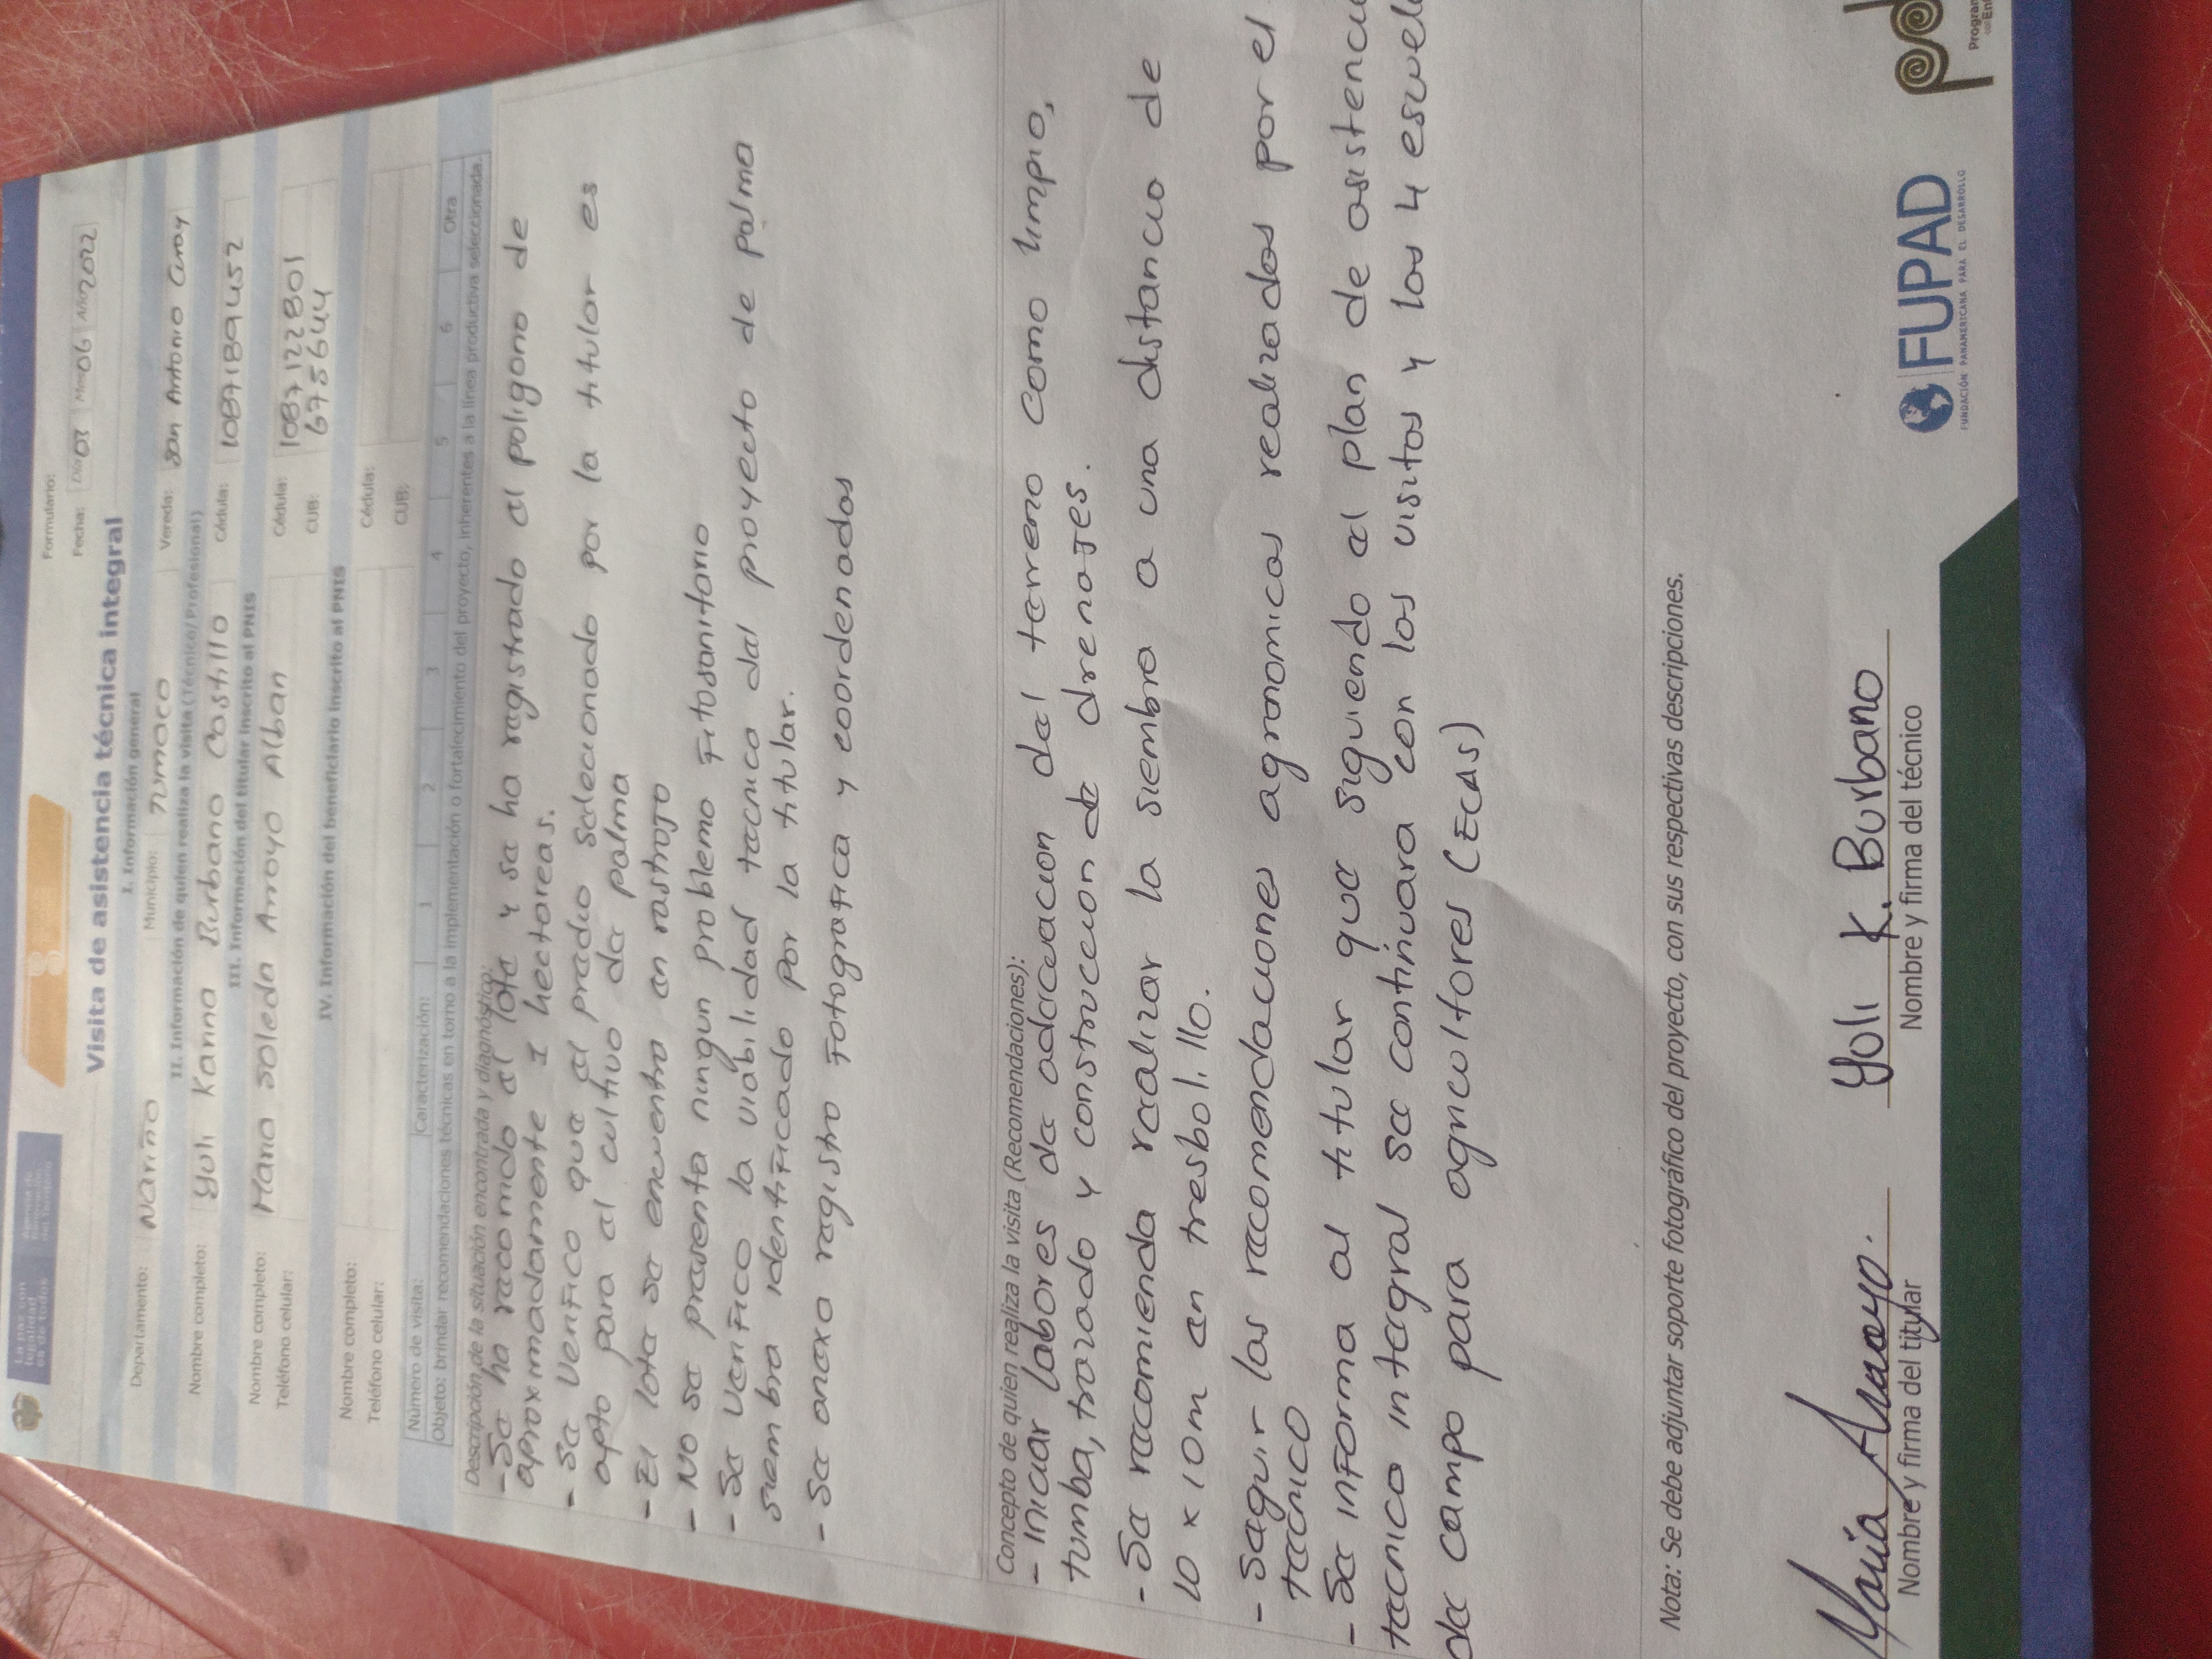 La paz con
legalidad
es de todos
Formulario:
Fecha: Día 03 Mes 06 Año 2022
Visita de asistencia técnica integral
I. Información general
Departamento: Nariño Municipio: Tumaco Vereda: San Antonio Curay
II. Información de quien realiza la visita (Técnico/Profesional)
Nombre completo: Yuli Karina Burbano Castillo Cédula: 1087189452
III. Información del titular inscrito al PNIS
Nombre completo: Maria Soleda Arroyo Alban Cédula: 1087122801
Teléfono celular: CUB: 6756644
IV. Información del beneficiario inscrito al PNIS
Nombre completo: Cédula:
Teléfono celular: CUB:
Número de visita: Caracterización: 1 2 3 4 5 6 Otra
Objeto: brindar recomendaciones técnicas en torno a la implementación o fortalecimiento del proyecto, inherentes a la línea productiva seleccionada.
Descripción de la situación encontrada y diagnóstico:
- Se ha recorrido el lote y se ha registrado el poligono de
aproximadamente 1 hectareas.
- Se verifico que el predio seleccionado por la titular es
apto para el cultivo de palma
- El lote se encuentra en rastrojo
- No se presenta ningun problema Fitosanitario
- Se verifico la viabilidad tecnica del proyecto de palma
siembra identificado por la titular.
- Se anexa registro Fotografica y coordenadas
Concepto de quien realiza la visita (Recomendaciones):
- Iniciar labores de adecuacion del terreno como limpia,
tumba, trazado y construccion de drenajes.
- Se recomienda realizar la siembra a una distancia de
10 x 10m en tresbolillo.
- Seguir las recomendaciones agronomicas realizadas por el
tecnico
- Se informa al titular que siguiendo el plan de asistencia
tecnica integral se continuara con las visitas y las 4 escuel
de campo para agricultores (ECAS)
Nota: Se debe adjuntar soporte fotográfico del proyecto, con sus respectivas descripciones.
Maria Arroyo. Yuli K. Burbano
Nombre y firma del titular Nombre y firma del técnico
FUPAD
FUNDACIÓN PANAMERICANA PARA EL DESARROLLO